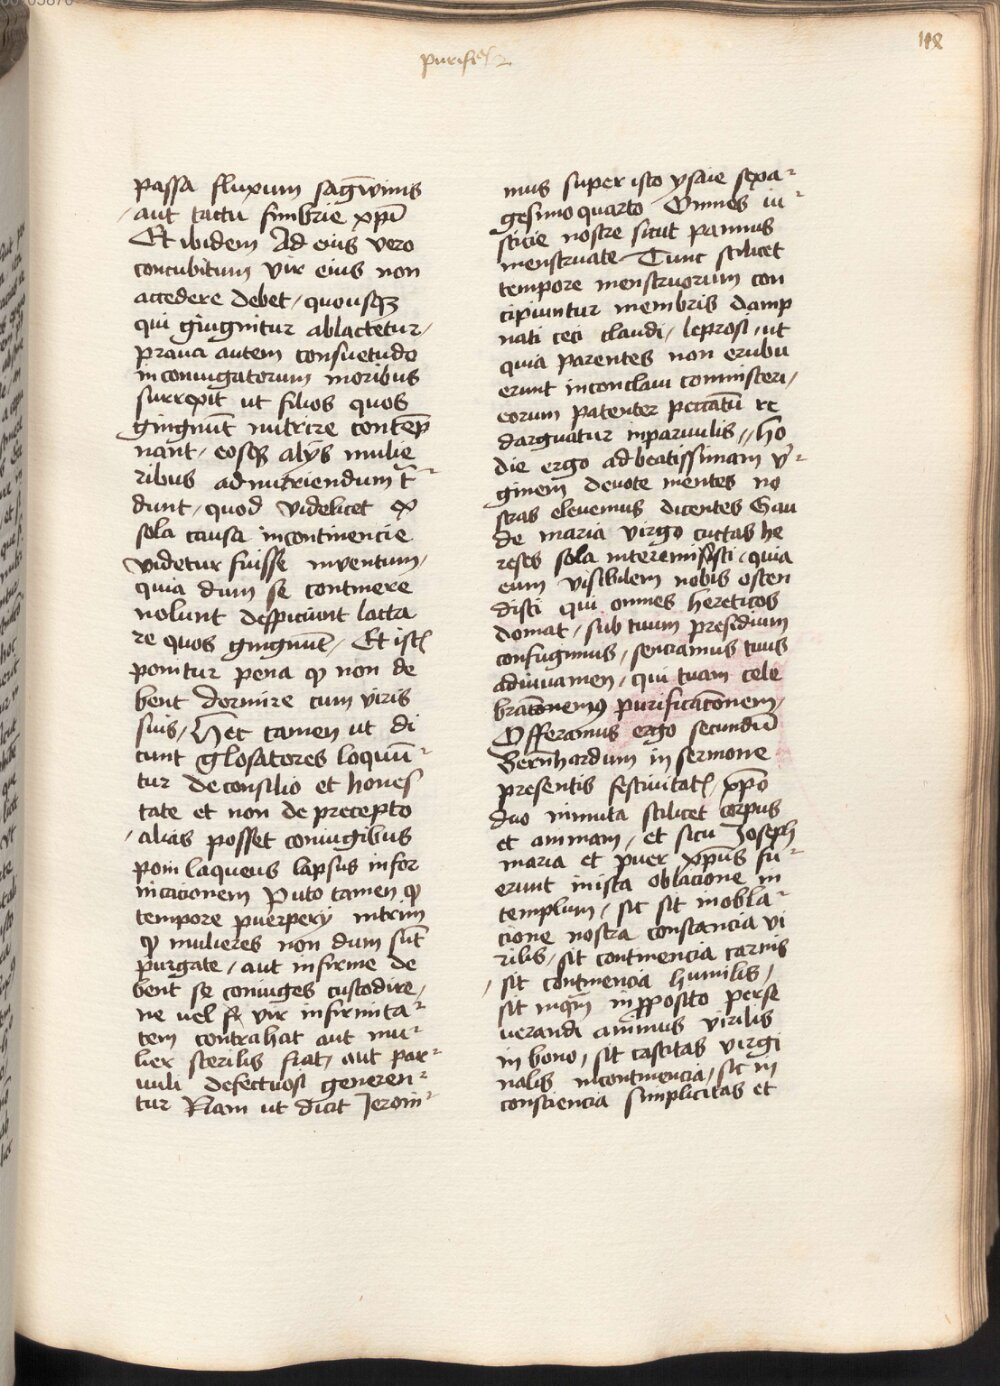 purificac
118
passa fluxum sagwinis
aut tactu fimbrie xpi
Et ibidem Ad eius vero
concubitum vir eius non
accedere debet / quousqz
qui gingnitur ablactetur /
praua autem consuetudo
in coniugatorum moribus
surrepit ut filios quos
gingnut nutrire contep
nant / eosqz alijs mulie
ribus ad nutriendum t
dunt / quod videlicet ex
sola causa incontinencie
videtur fuisse inventum /
quia dum se continere
nolunt despiciunt lacta
re quos gingnut / Et istis
ponitur pena q non de
bent dormire cum viris
suis / Hec tamen ut di
cunt glosatores loquu
tur de consilio et hones
tate et non de precepto
/ alias posset coniugibus
poni laqueus lapsus in for
nicacionem Puto tamen q
tempore puerperij nitrim
q mulieres non dum sut
purgate / aut infirme de
bent se coniuges custodire /
ne uel vir infirmita
tem contrahat aut mu
lier sterilis fiat / aut par
uuli defectuosi generen
tur Nam ut dicit Jeroni
mus super isto ysaie sexa
gesimo quarto Omnes iu
sticie nostre sicut pannus
menstruate Tunc scilicet
tempore menstruorum con
cipiuntur membris damp
nati ceci claudi / leprosi / ut
quia parentes non erubu
erunt in conclaui commisceri /
eorum patenter peccatu re
darguatur in paruulis // Ho
die ergo ad beatissimam v
ginem deuote mentes no
stras eleuemus dicentes Gau
de maria virgo cuctas he
reses sola interemisti / quia
eum visibilem nobis osten
disti qui omnes hereticos
domat / sub tuum presidium
confugimus / senciamus tuus
adiuuamen / qui tuam cele
bratonemq purificatonem /
Offeramus ergo secundu
Bernhardum in sermone
presentis festiuitatis / xpo
duo minuta scilicet corpus
et animam / et sicu Joseph
maria et puer xpus fu
erunt in ista oblacione in
templum / sic sit in obla
cione nostra constancia vi
rilis / sit continencia carnis
/ sit continencia humilis /
sit inqm in pposito perse
uerandi animus virilis
in bono / sit castitas virgi
nalis in continencia / sit in
consciencia simplicitas et